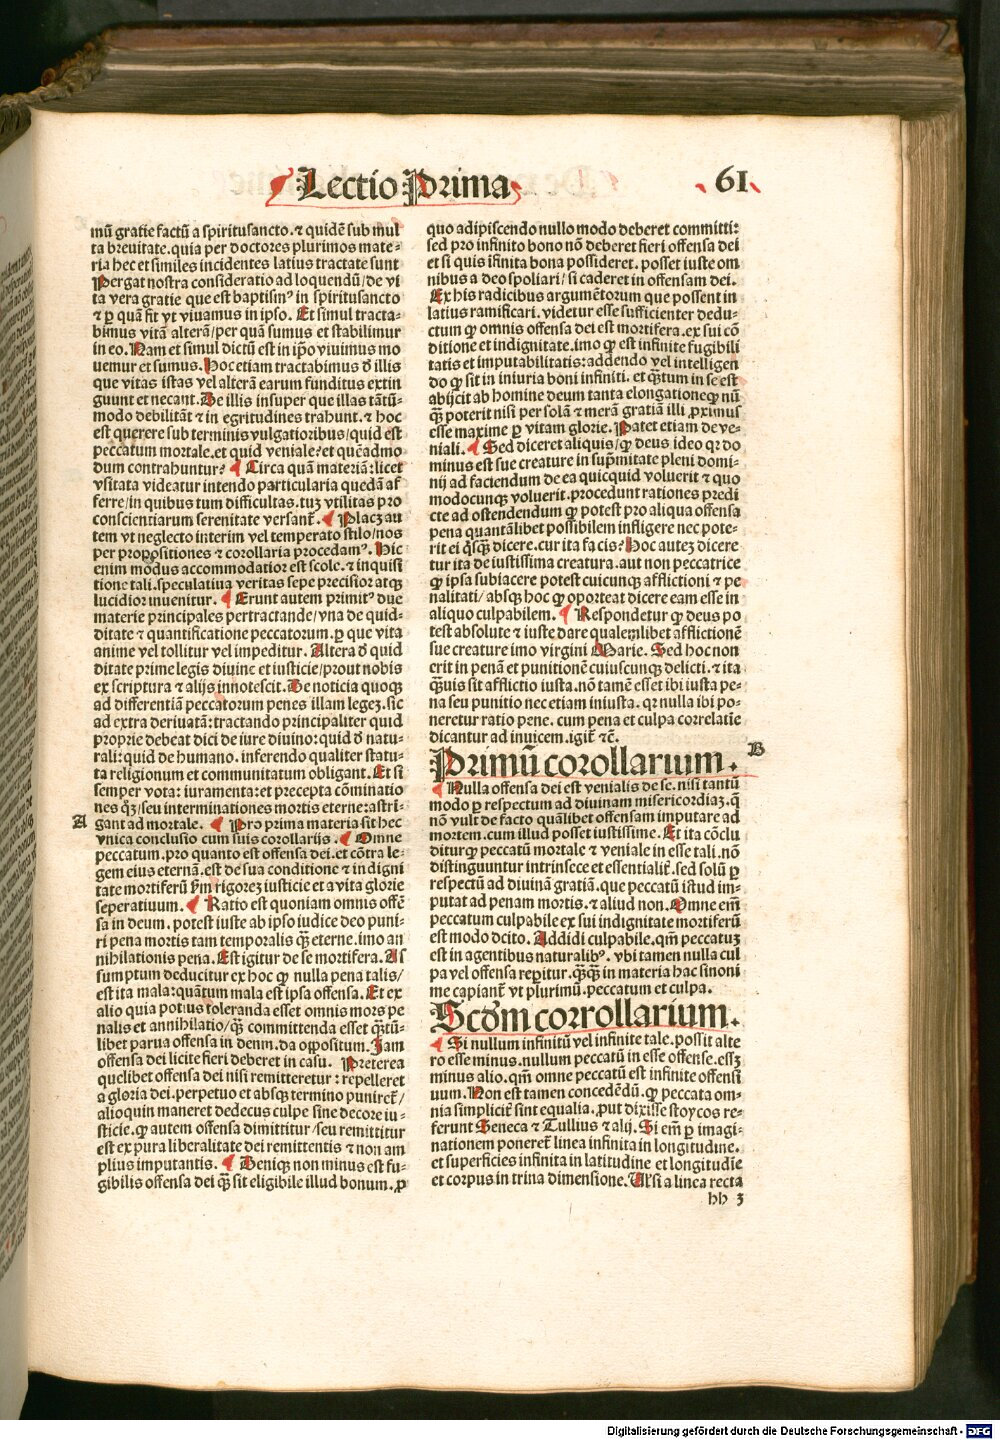 Lectio Prima
61
mū gratie factū a spiritusancto. ⁊ quidē sub mul
ta breuitate. quia per doctores plurimos mate-
ria hec et similes incidentes latius tractate sunt
Pergat nostra consideratio ad loquendū/de vi
ta vera gratie que est baptismꝰ in spiritusancto
⁊ ꝑ quā fit vt viuamus in ipso. Et simul tracta-
bimus vitā alterā/per quā sumus et stabilimur
in eo. Nam et simul dictū est in ip̄o viuimus mo
uemur et sumus. Hoc etiam tractabimus ð illis
que vitas istas vel alterā earum funditus extin
guunt et necant. De illis insuper que illas tātū-
modo debilitāt ⁊ in egritudines trahunt. ⁊ hoc
est querere sub terminis vulgatioribus/quid est
peccatum mortale. et quid veniale? et quēadmo
dum contrahuntur? Circa quā materiā: licet
vsitata videatur intendo particularia quedā af
ferre/in quibus tum difficultas. tuꝫ vtilitas pro
conscientiarum serenitate versant̄. Placꝫ au
tem vt neglecto interim vel temperato stilo/nos
per propositiones ⁊ corollaria procedamꝰ. Hic
enim modus accommodatior est scole. ⁊ inquisi
tione tali. speculatiua veritas sepe precisior atqꝫ
lucidior inuenitur. Erunt autem primitꝰ due
materie principales pertractande/vna de quid-
ditate ⁊ quantificatione peccatorum. ꝑ que vita
anime vel tollitur vel impeditur. Altera ð quid
ditate prime legis diuine et iusticie/prout nobis
ex scriptura ⁊ alijs innotescit. De noticia quoqꝫ
ad differentiā peccatorum penes illam legeꝫ. sic
ad extra deriuatā: tractando principaliter quid
proprie debeat dici de iure diuino: quid ð natu-
rali: quid de humano. inferendo qualiter statu-
ta religionum et communitatum obligant. Et si
semper vota: iuramenta: et precepta cōminatio
nes qꝫ/seu interminationes mortis eterne: astri-
A
gant ad mortale. Pro prima materia sit hec
vnica conclusio cum suis corollarijs. Omne
peccatum. pro quanto est offensa dei. et cōtra le-
gem eius eternā. est de sua conditione ⁊ indigni
tate mortiferū ẜm rigoreꝫ iusticie et a vita glorie
seperatiuum. Ratio est quoniam omnis offē
sa in deum. potest iuste ab ipso iudice deo puni-
ri pena mortis tam temporalis q̄ꝫ eterne. imo an
nihilationis pena. Est igitur de se mortifera. As
sumptum deducitur ex hoc ꝙ nulla pena talis/
est ita mala: quātum mala est ipsa offensa. Et ex
alio quia potius toleranda esset omnis mors pe
nalis et annihilatio/q̄ꝫ committenda esset q̄ꝫtū-
libet parua offensa in deum. da oppositum. Jam
offensa dei licite fieri deberet in casu. Preterea
quelibet offensa dei nisi remitteretur: repelleret
a gloria dei. perpetuo et absqꝫ termino puniret̄/
alioquin maneret dedecus culpe sine decore iu-
sticie. ꝙ autem offensa dimittitur/seu remittitur
est ex pura liberalitate dei remittentis ⁊ non am
plius imputantis. Deniqꝫ non minus est fu-
gibilis offensa dei q̄ꝫ sit eligibile illud bonum. ꝓ
quo adipiscendo nullo modo deberet committi:
sed pro infinito bono nō deberet fieri offensa dei
et si quis īfinita bona possideret. posset iuste om
nibus a deo spoliari/si caderet in offensam dei.
Ex his radicibus argumētorum que possent in
latius ramificari. videtur esse sufficienter dedu-
ctum ꝙ omnis offensa dei est mortifera. ex sui cō
ditione et indignitate. imo ꝙ est infinite fugibili
tatis et imputabilitatis: addendo vel intelligen
do ꝙ sit in iniuria boni infiniti. et q̄ꝫtum in se est
abijcit ab homine deum tanta elongatione ꝙ nū
q̄ꝫ poterit nisi per solā ⁊ merā gratiā illi ꝓximus
esse maxime ꝑ vitam glorie. Patet etiam de ve-
niali. Sed diceret aliquis/ꝙ deus ideo qꝛ do
minus est sue creature in supꝛēmitate pleni domi-
nij ad faciendum de ea quicquid voluerit ⁊ quo
modocunqꝫ voluerit. procedunt rationes predi
cte ad ostendendum ꝙ potest pro aliqua offensa
pena quantālibet possibilem infligere nec pote-
rit ei q̄sqꝫ dicere. cur ita facis? Hoc auteꝫ dicere
tur ita de iustissima creatura. aut non peccatrice
ꝙ ipsa subiacere potest cuicunqꝫ afflictioni ⁊ pe
nalitati/absqꝫ hoc ꝙ oporteat dicere eam esse in
aliquo culpabilem. Respondetur ꝙ deus po
test absolute ⁊ iuste dare qualemlibet afflictionē
sue creature imo virgini Marie. Sed hoc non
erit in penā et punitionē cuiuscunqꝫ delicti. ⁊ ita
q̄ꝫuis sit afflictio iusta. nō tamē esset ibi iusta pe-
na seu punitio nec etiam iniusta. qꝛ nulla ibi po-
neretur ratio pene. cum pena et culpa correlatiē
dicantur ad inuicem. igit̄ ⁊c̄.
Primū corollarium. B
Nulla offensa dei est venialis de se. nisi tantū
modo ꝑ respectum ad diuinam misericordiaꝫ. q̄
nō vult de facto quālibet offensam imputare ad
mortem. cum illud posset iustissime. Et ita cōclu
ditur ꝙ peccatū mortale ⁊ veniale in esse tali. nō
distinguuntur intrinsece et essentialit̄. sed solū ꝑ
respectū ad diuinā gratiā. que peccatū istud im-
putat ad penam mortis. ⁊ aliud non. Omne em̄
peccatum culpabile ex sui indignitate mortiferū
est modo dcīto. Addidi culpabile. qm̄ peccatuꝫ
est in agentibus naturalibꝰ. vbi tamen nulla cul
pa vel offensa reperitur. q̄ꝫq̄ꝫ in materia hac sinoni
me capiant̄ vt plurimū. peccatum et culpa.
Scd̄m corrollarium.
Si nullum infinitū vel infinite tale. possit alte
ro esse minus. nullum peccatū in esse offense. essꝫ
minus alio. qm̄ omne peccatū est infinite offensi
uum. Non est tamen concedēdū. ꝙ peccata om-
nia simplicit̄ sint equalia. ꝓut dixisse stoycos re-
ferunt Seneca ⁊ Tullius ⁊ alij. Si em̄ ꝑ imagi-
nationem poneret̄ linea infinita in longitudine.
et superficies infinita in latitudine et longitudīe
et corpus in trina dimensione. Ubi si a linea recta
hh 3
Digitalisierung gefördert durch die Deutsche Forschungsgemeinschaft - DFG